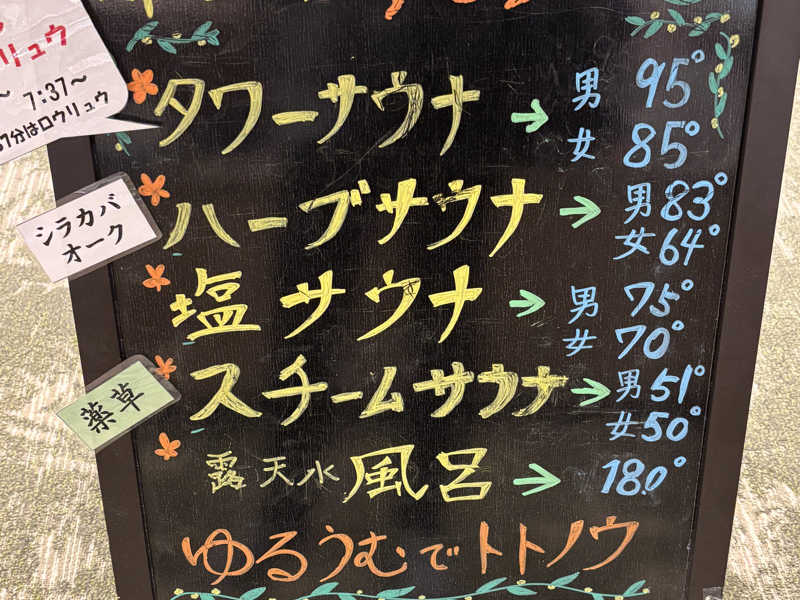 リュウ
7:37～
37分はロウリュウ
タワーサウナ → 男 95°
女 85°
シラカバ
オーク
ハーブサウナ → 男 83°
女 64°
塩サウナ → 男 75°
女 70°
薬草
スチームサウナ → 男 51°
女 50°
露天水風呂 → 18.0°
ゆるうむでトトノウ